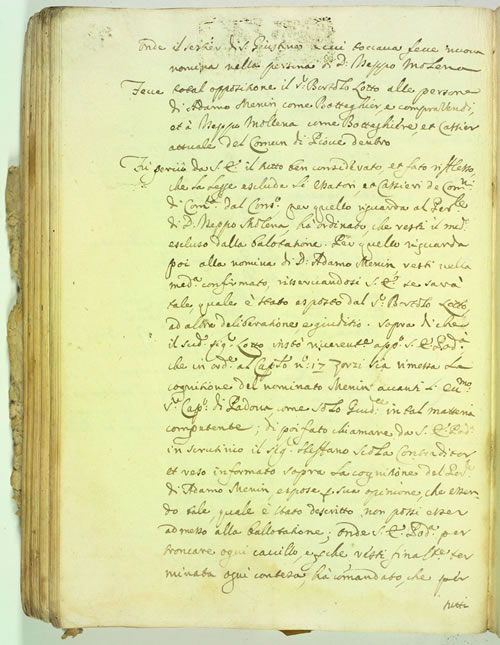 onde il sestier di S. Giustina a cui toccava fece nuova
nomina nella persona di D. Beppo Molena
Fece total oppositione il Sr. Bortolo Lotto alle persone
di Adamo Menin come Botteghier, e compra vendi,
et à Beppo Mollena come Botteghiere, et Cassier
attuale del Comun di Piove dentro
Fù perciò da S. E. il tutto ben considerato et fato riflesso
che la legge esclude li essatori et Cassieri de
di dal Conso. per quello riguarda al
di D. Beppo Molena, hà ordinato, che resti il med.
escluso dalla balotatione. Per quello riguarda
poi alla nomina di D. Adamo Menin resti nella
meda. confirmato risservandosi S. E. se sarà
tale quale è stato esposto dal Sr. Bortolo Lotto
ad altra deliberatione e giuditio. Sopra di che
il sud. sigr. Lotto instò riverente. appo. S. E. Pod.
che in ord. al Capo. no. 17 Zorzi sia rimessa la
cognitione del nominato Menin avanti S.
Sr. Capo. di Padova, come solo Giud. in tal materia
competente; di poi fato chiamare da S. E. Pod.
in scrutinio il Sigr. Steffano Scola Contraditor
et reso informato sopra la cognitione del
di Adamo Menin espose sua opinione, che essen
do tale quale è stato descritto non possi esser
admesso alla ballotatione; onde S. E. Pod. per
troncare ogni cavillo e che resti ter
minata ogni contesa, hà comandato, che per
tutti